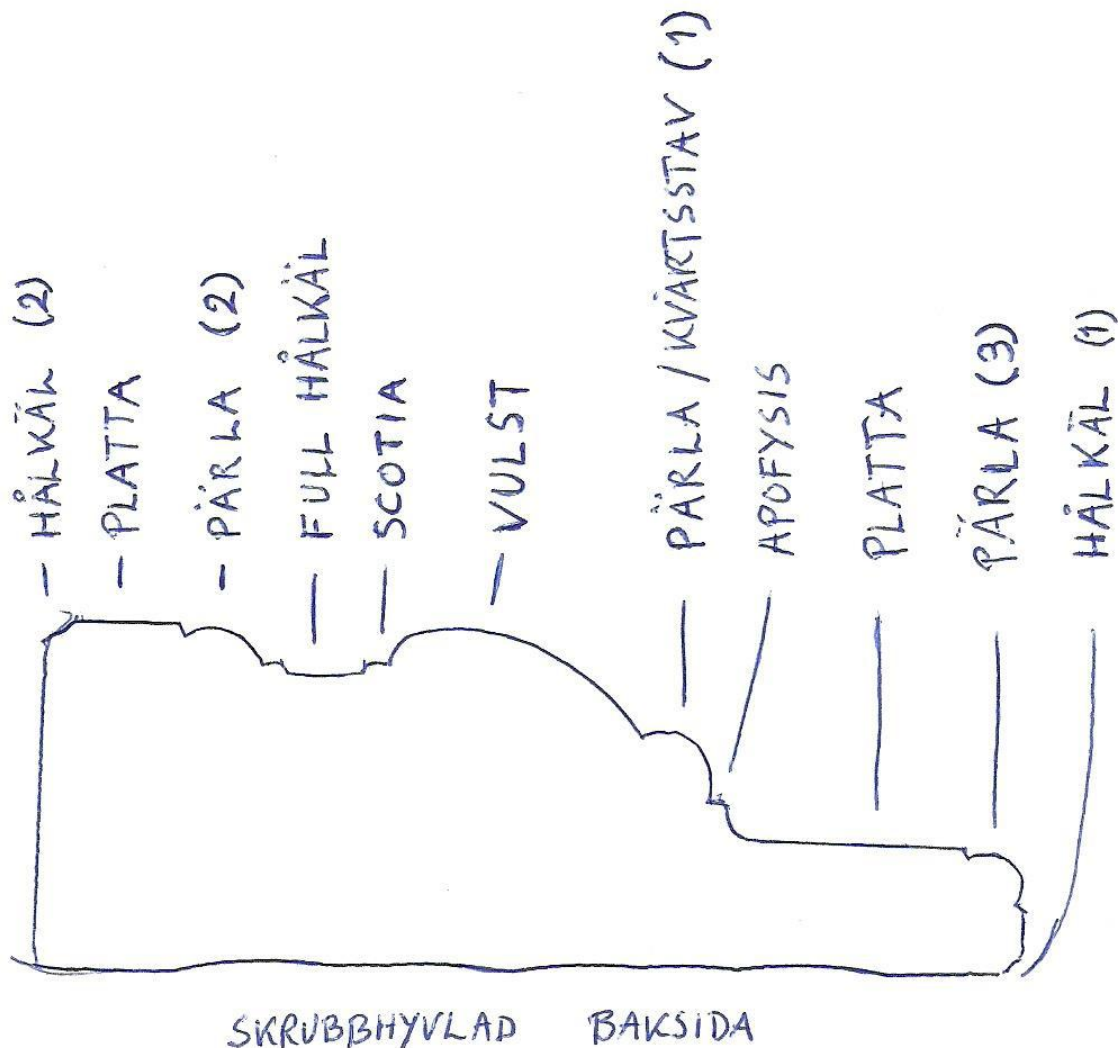 HÅLKÄL (2)
PLATTA
PÄRLA (2)
FULL HÅLKÄL
SCOTIA
VULST
PÄRLA / KVARTSSTAV (1)
APOFYSIS
PLATTA
PÄRLA (3)
HÅLKÄL (1)
SKRUBBHYVLAD BAKSIDA